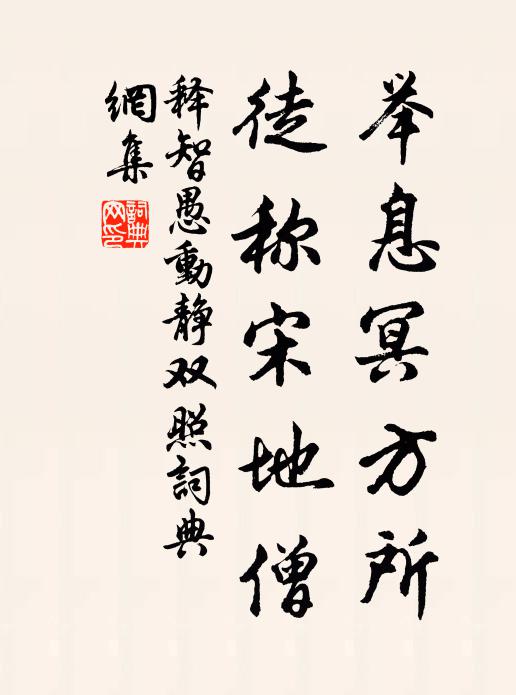 举息冥方所
徒称宋地僧
释智愚動静双照詞典
網集
詞典
网印